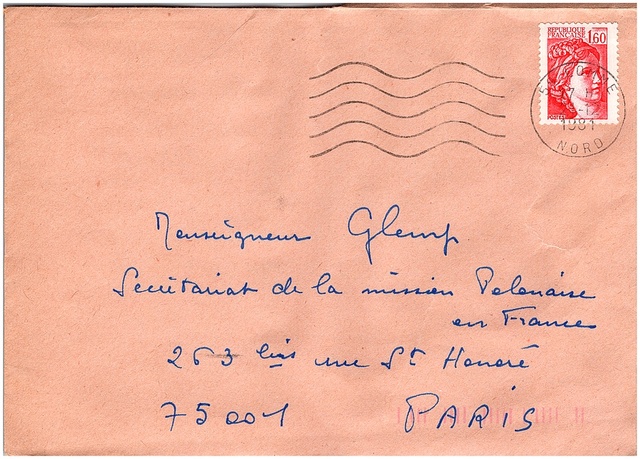 REPUBLIQUE
FRANCAISE 1,60
1981
NORD
Monseigneur Glemp
Secrétariat de la mission Polonaise
en France
263 bis rue St Honoré
75001 PARIS